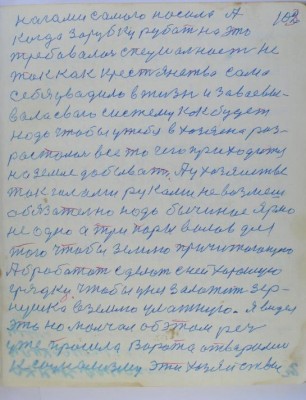 ногами самого носила А
когда Зарубку рубат на это
требовалса специалност не
так как крестянства сама
себя увадило в жизн и Завоевы
вала свого систему как будет
надо чтобы у тебя в хозяена раз
расталса все то чего приходитса
на земле добыват. А у хозяистве
так галами руками не возмеш
обязателно надо бычиное ярмо
не одно а три пары валов для
того чтобы землю
Абработат сделат с неи хорошую
грядку чтобы у неи Заложит зер
нушко в землю влажную. Я видел
это но молчал об этом рез
уже прошела Варота атварали
к социализму эти хозяиства